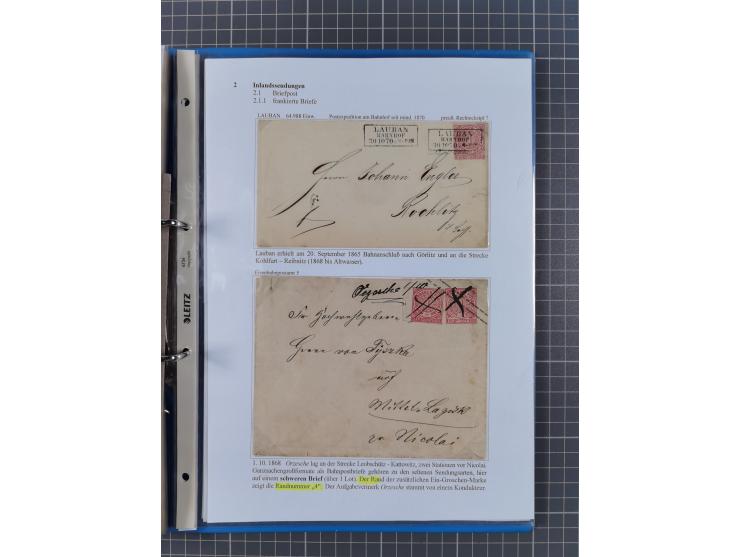 2 Inlandssendungen
2.1 Briefpost
2.1.1 frankierte Briefe
LAUBAN 64.988 Einw. Postexpedition am Bahnhof seit mind. 1870 preuß. Rechteckstpl ?
LAUBAN
BAHNHOF
20 10 70
LAUBAN
BAHNHOF
20 10 70
Herrn Johann Engler
Rochlitz
Lauban erhielt am 20. September 1865 Bahnanschluß nach Görlitz und an die Strecke
Kohlfurt – Reibnitz (1868 bis Altwasser).
Eisenbahnpostamt 5
Orzesche 1/10
Sr Hochwohlgeboren
Herrn von Tyszka
auf
Mittel-Lazisk
Nicolai
1. 10. 1868 Orzesche lag an der Strecke Leobschütz - Kattowitz, zwei Stationen vor Nicolai.
Ganzsachengroßformate als Bahnpostbriefe gehören zu den seltenen Sendungsarten, hier
auf einem schweren Brief (über 1 Lot). Der Rand der zusätzlichen Ein-Groschen-Marke
zeigt die Randnummer „4". Der Aufgabevermerk Orzesche stammt von einem Kondukteur.
LEITZ